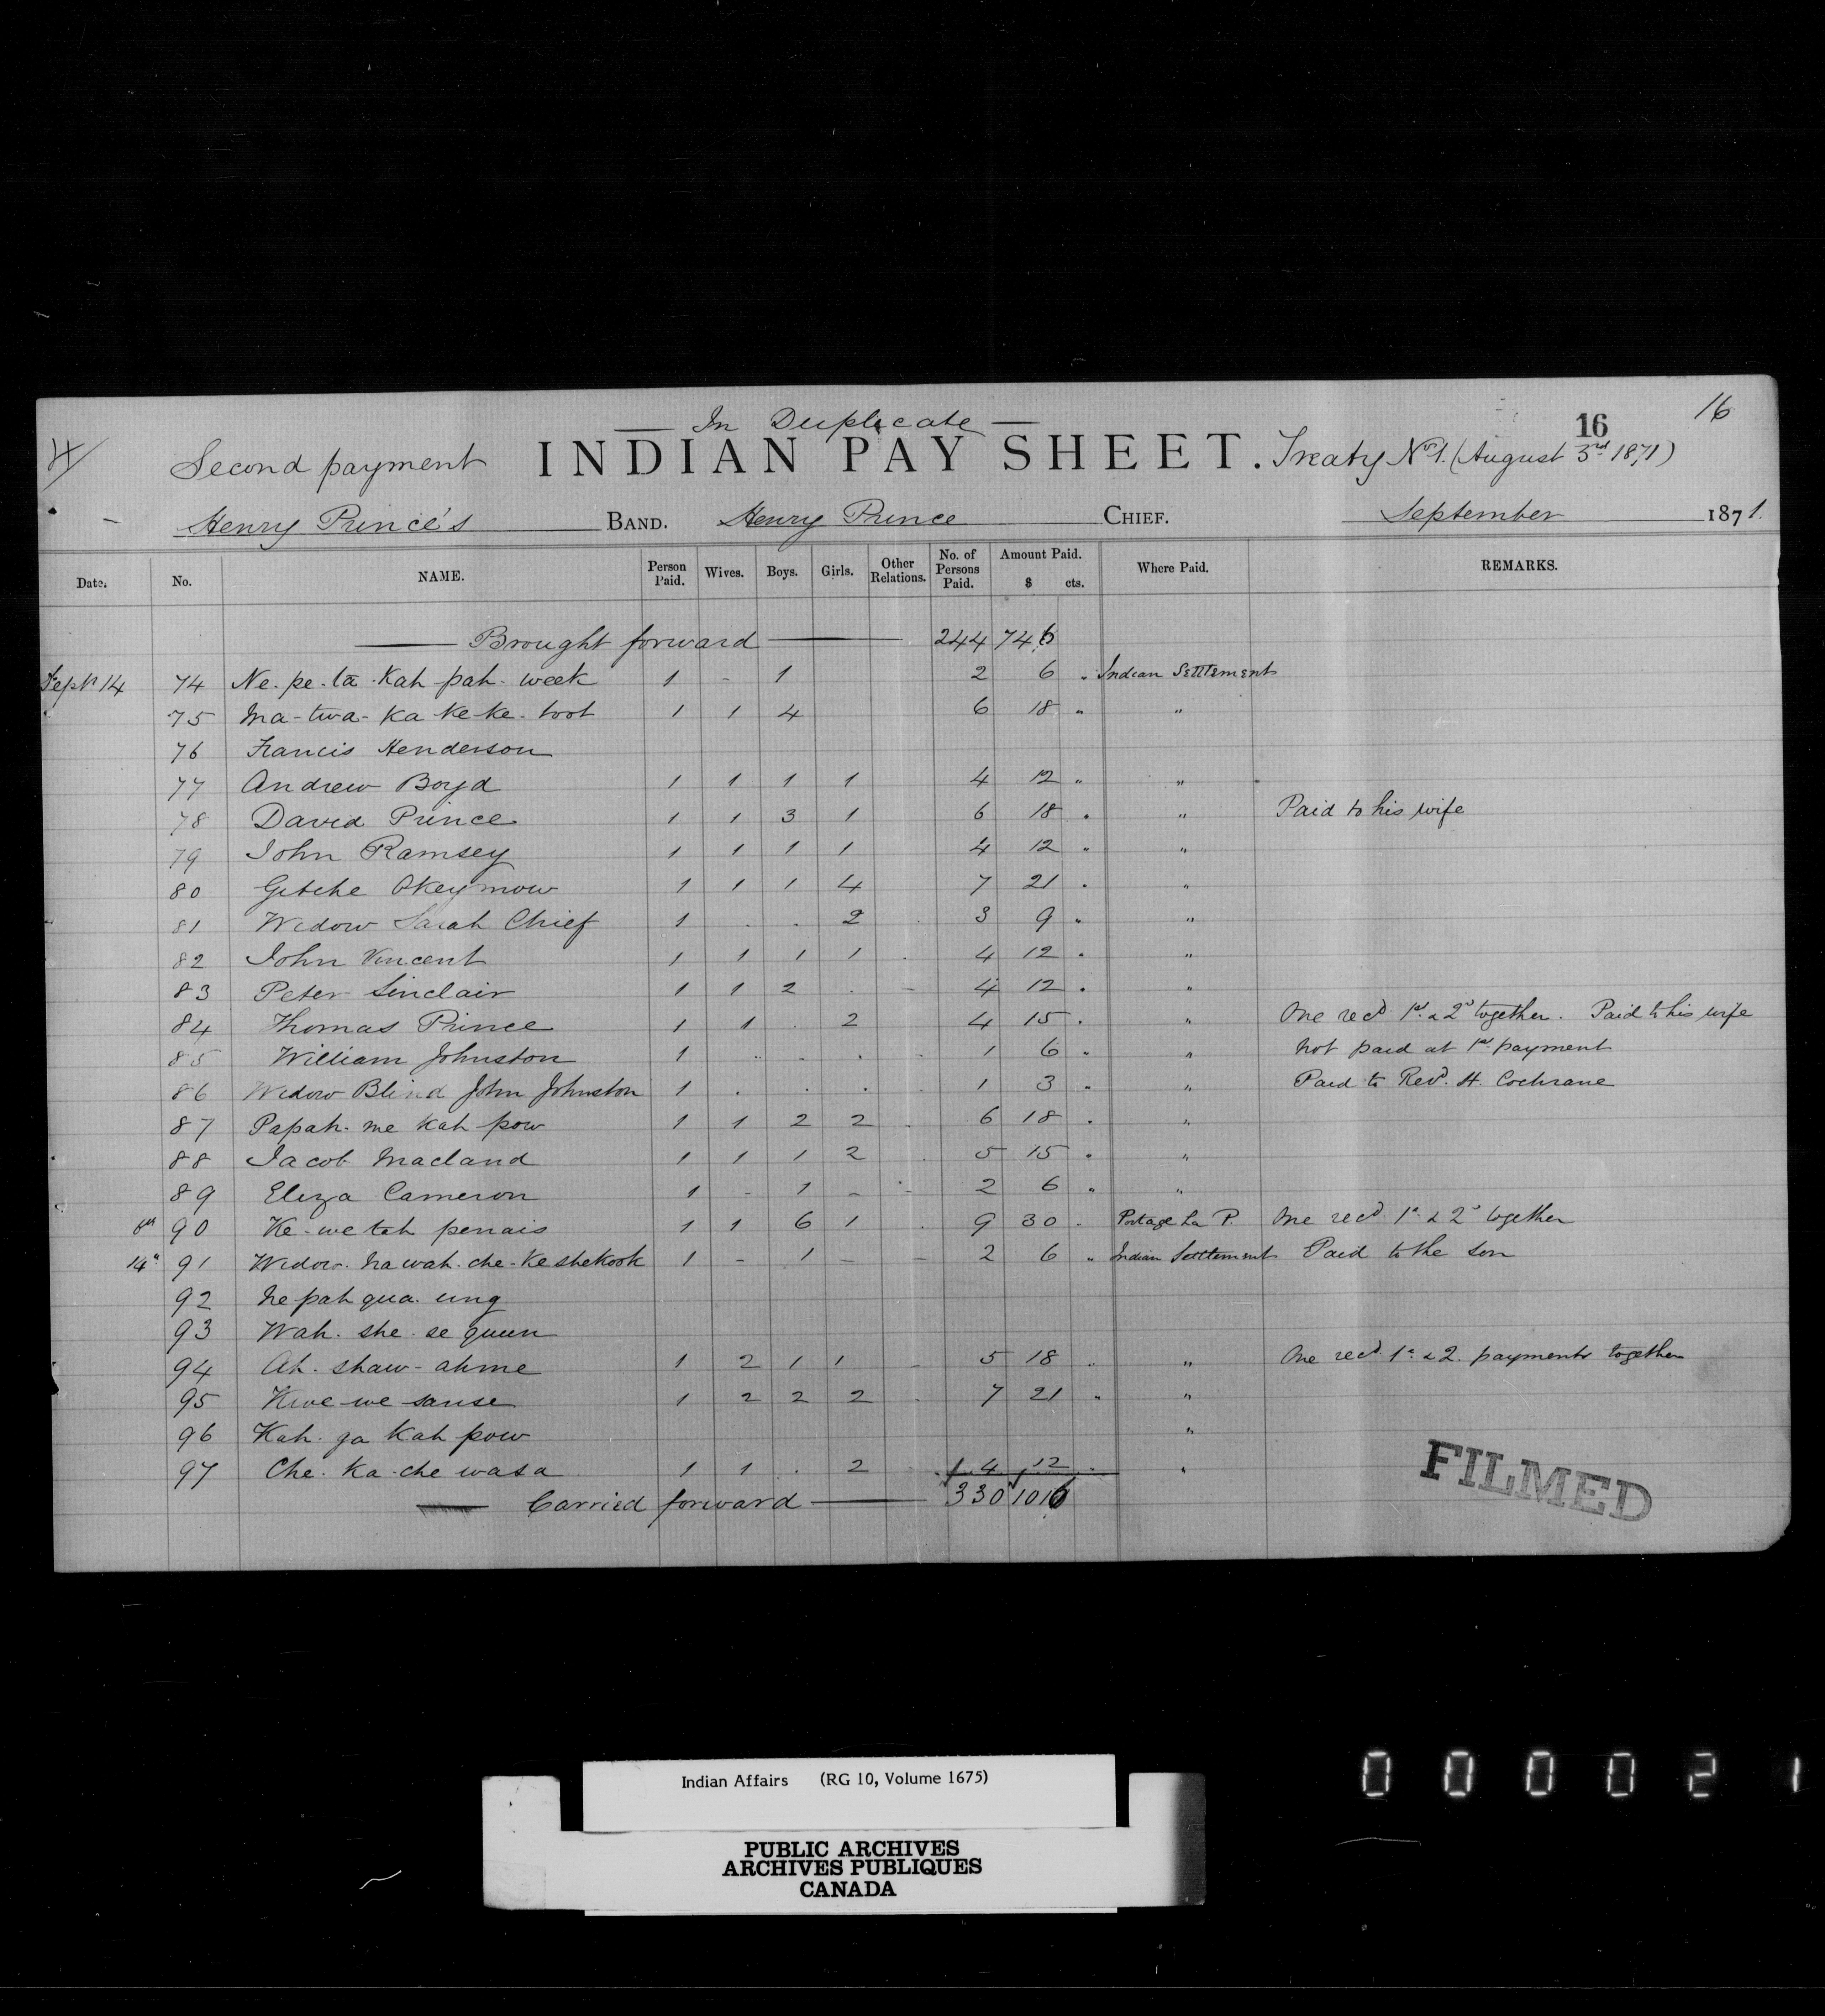 In Duplicate
16
16
Second payment INDIAN PAY SHEET. Treaty No 1. (August 3rd 1871)
Henry Prince's BAND. Henry Prince CHIEF. September 1871.
Date. No. NAME. Person Paid. Wives. Boys. Girls. Other Relations. No. of Persons Paid. Amount Paid. $ cts. Where Paid. REMARKS.
Brought forward 244 746
Sept 14 74 Ne-pe-ta-Kah-pah-week 1 - 1 2 6 " Indian Settlement
75 Ma-twa-Ka-Ke-Ke-toot 1 1 4 6 18 " "
76 Francis Henderson
77 Andrew Boyd 1 1 1 1 4 12 " "
78 David Prince 1 1 3 1 6 18 " " Paid to his wife
79 John Ramsey 1 1 1 1 4 12 " "
80 Getche Okeymow 1 1 1 4 7 21 " "
81 Widow Sarah Chief 1 . . 2 3 9 " "
82 John Vincent 1 1 1 1 4 12 " "
83 Peter Sinclair 1 1 2 . - 4 12 " "
84 Thomas Prince 1 1 2 4 15 " " One recd 1st & 2d together. Paid to his wife
85 William Johnston 1 . . . 1 6 " " Not paid at 1st payment
86 Widow Blind John Johnston 1 . . . 1 3 " " Paid to Revd. H. Cochrane
87 Papah-me Kah pow 1 1 2 2 6 18 " "
88 Jacob Macland 1 1 1 2 5 15 " "
89 Eliza Cameron 1 - 1 - - 2 6 " "
90 Ke-we tah penais 1 1 6 1 9 30 " Portage La P. One recd 1st & 2d together
14" 91 Widow Na wah-che-Ke shekook 1 - 1 - - 2 6 " Indian Settlement Paid to the son
92 Ne pah qua-ung
93 Wah-she-se quun
94 Ah-shaw-ahme 1 2 1 1 5 18 " " One recd 1st & 2. payments together
95 Kwe-we sanse 1 2 2 2 7 21 " "
96 Kah-ga Kah pow "
97 Che-Ka-che wasa 1 1 . 2 4 12 " "
Carried forward 330 1016
FILMED
Indian Affairs (RG 10, Volume 1675)
PUBLIC ARCHIVES
ARCHIVES PUBLIQUES
CANADA
000021